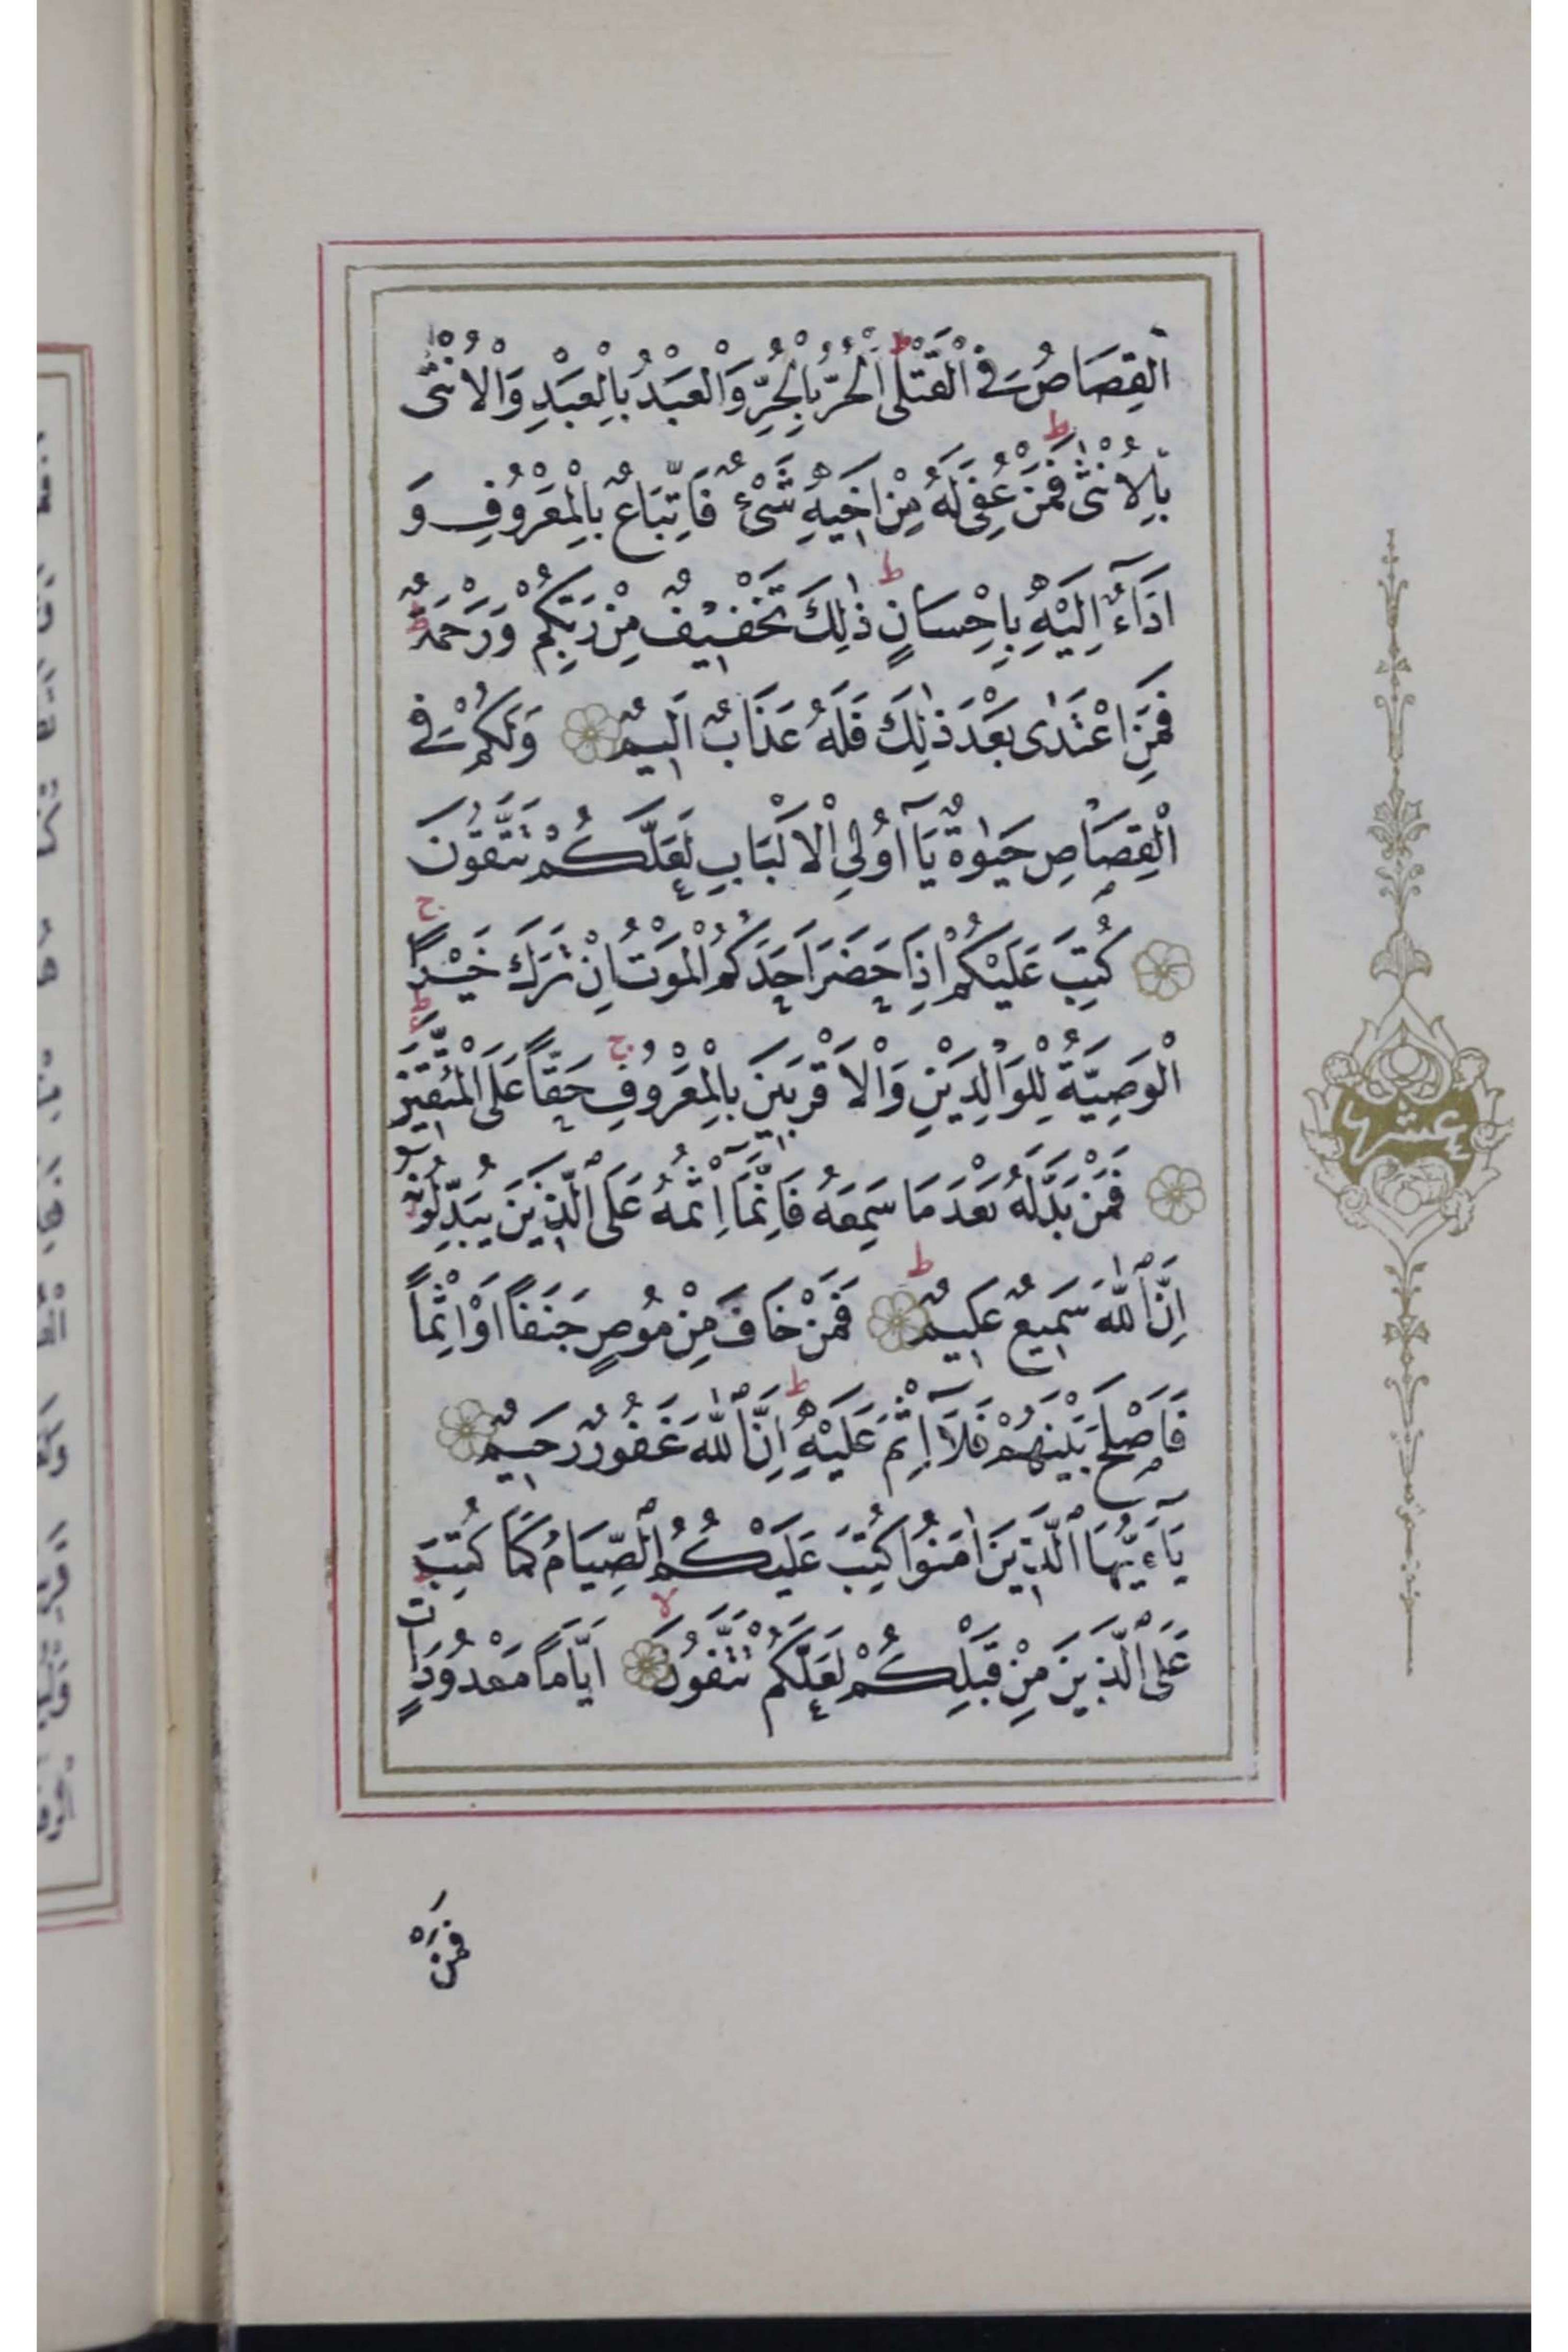 اَلْقِصَاصُ فِي الْقَتْلٰى اَلْحُرُّ بِالْحُرِّ وَالْعَبْدُ بِالْعَبْدِ وَالْاُنْثٰى
بِالْاُنْثٰى فَمَنْ عُفِيَ لَهُ مِنْ اَخِيهِ شَيْءٌ فَاتِّبَاعٌ بِالْمَعْرُوفِ وَ
اَدَاءٌ اِلَيْهِ بِاِحْسَانٍ ذٰلِكَ تَخْفِيفٌ مِنْ رَبِّكُمْ وَرَحْمَةٌ
فَمَنِ اعْتَدٰى بَعْدَ ذٰلِكَ فَلَهُ عَذَابٌ اَلِيمٌ وَلَكُمْ فِي
الْقِصَاصِ حَيٰوةٌ يَآ اُولِي الْاَلْبَابِ لَعَلَّكُمْ تَتَّقُونَ
كُتِبَ عَلَيْكُمْ اِذَا حَضَرَ اَحَدَكُمُ الْمَوْتُ اِنْ تَرَكَ خَيْرًا
الْوَصِيَّةُ لِلْوَالِدَيْنِ وَالْاَقْرَبِينَ بِالْمَعْرُوفِ حَقًّا عَلَى الْمُتَّقِينَ
فَمَنْ بَدَّلَهُ بَعْدَ مَا سَمِعَهُ فَاِنَّمَآ اِثْمُهُ عَلَى الَّذِينَ يُبَدِّلُونَهُ
اِنَّ اللّٰهَ سَمِيعٌ عَلِيمٌ فَمَنْ خَافَ مِنْ مُوصٍ جَنَفًا اَوْ اِثْمًا
فَاَصْلَحَ بَيْنَهُمْ فَلَآ اِثْمَ عَلَيْهِ اِنَّ اللّٰهَ غَفُورٌ رَحِيمٌ
يَآءَيُّهَا الَّذِينَ اٰمَنُوا كُتِبَ عَلَيْكُمُ الصِّيَامُ كَمَا كُتِبَ
عَلَى الَّذِينَ مِنْ قَبْلِكُمْ لَعَلَّكُمْ تَتَّقُونَ اَيَّامًا مَعْدُودَاتٍ
فَمَنْ
عشر